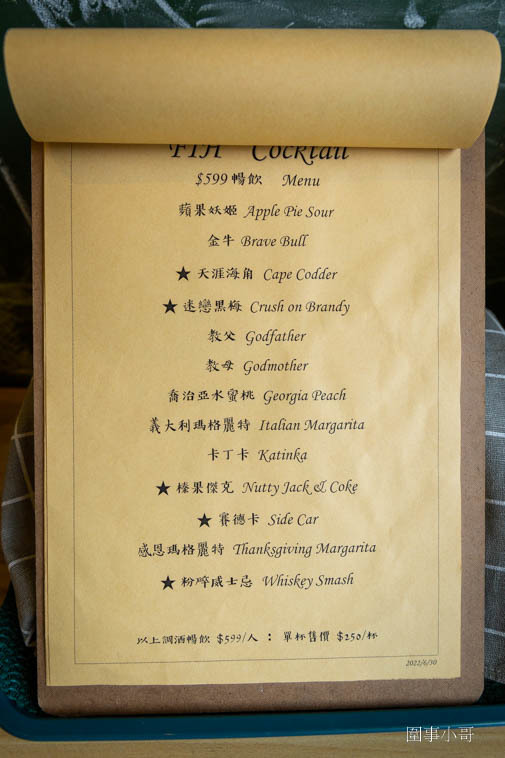 FIH Cocktail
$599 暢飲 Menu
蘋果妖姬 Apple Pie Sour
金牛 Brave Bull
★ 天涯海角 Cape Codder
★ 迷戀黑梅 Crush on Brandy
教父 Godfather
教母 Godmother
喬治亞水蜜桃 Georgia Peach
義大利瑪格麗特 Italian Margarita
卡丁卡 Katinka
★ 榛果傑克 Nutty Jack & Coke
★ 賽德卡 Side Car
感恩瑪格麗特 Thanksgiving Margarita
★ 粉碎威士忌 Whiskey Smash
以上調酒暢飲 $599/人 : 單杯售價 $250/杯
2022/6/30
圍事小哥